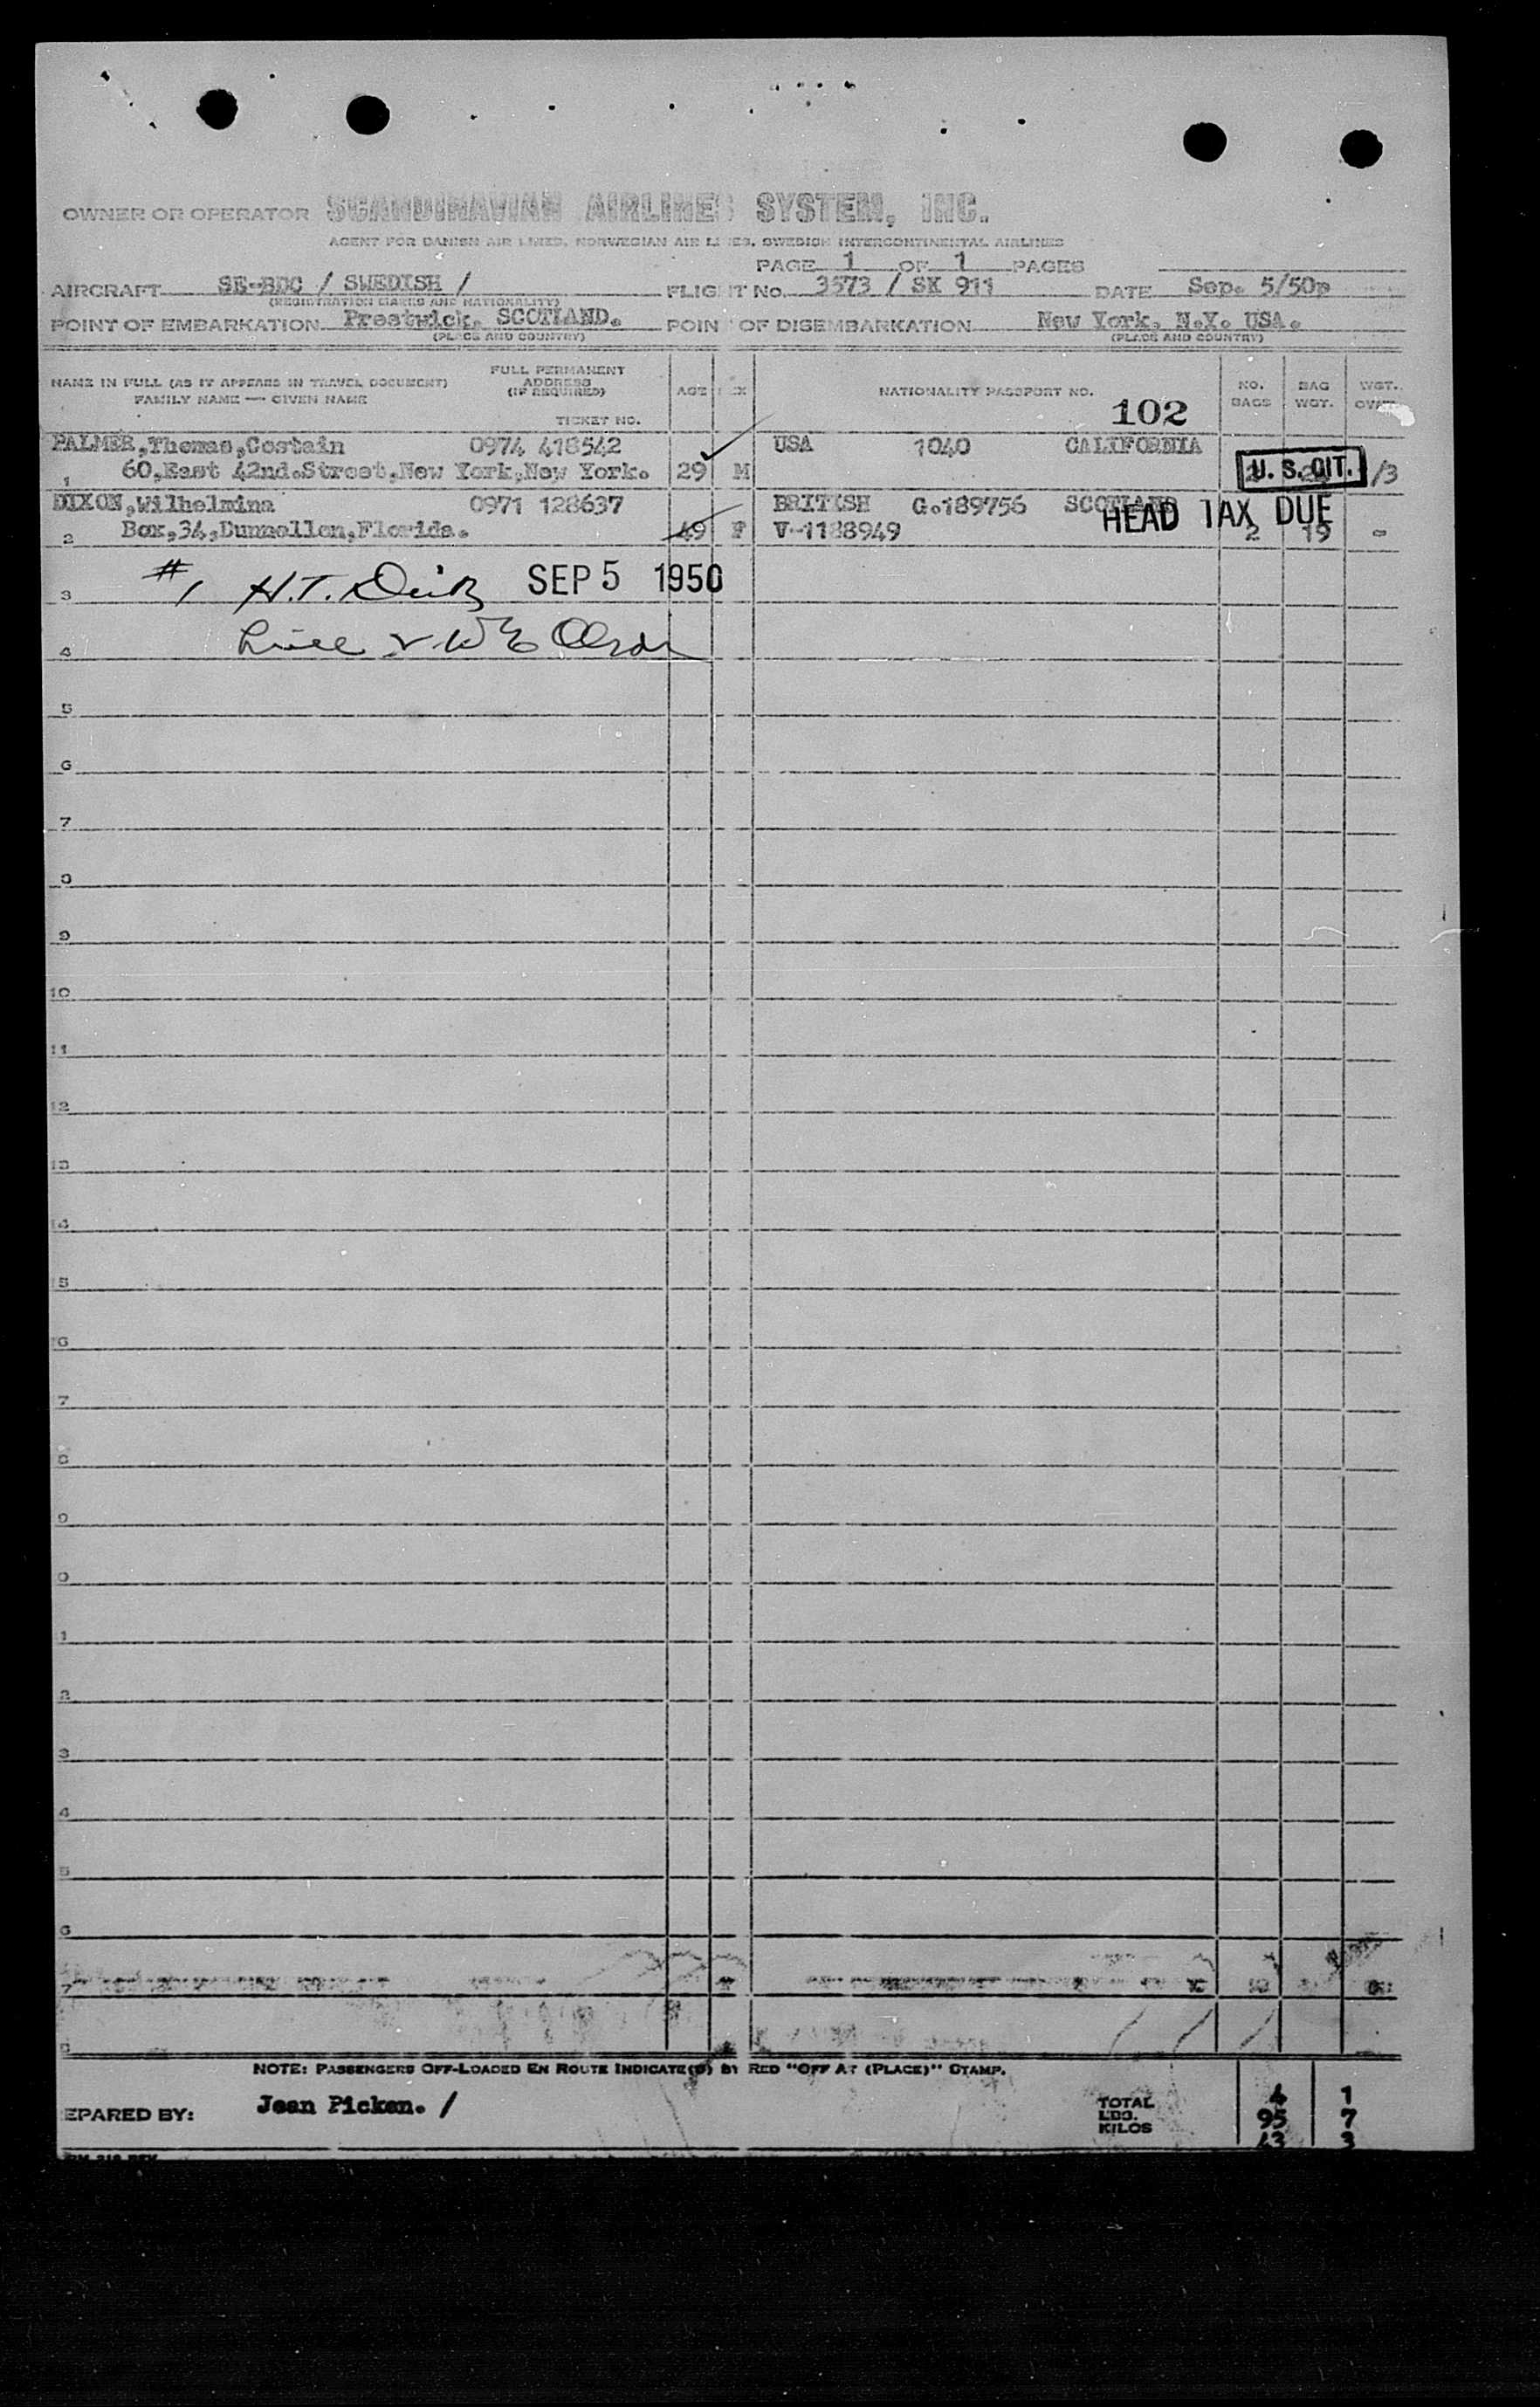 OWNER OR OPERATOR SCANDINAVIAN AIRLINES SYSTEM, INC.
AGENT FOR DANISH AIR LINES, NORWEGIAN AIR LINES, SWEDISH INTERCONTINENTAL AIRLINES
PAGE 1 OF 1 PAGES
AIRCRAFT SE-BDC / SWEDISH / FLIGHT NO. 3573 / SK 911 DATE Sep. 5/50p
(REGISTRATION MARKS AND NATIONALITY)
POINT OF EMBARKATION Prestwick, SCOTLAND. POINT OF DISEMBARKATION New York, N.Y. USA.
(PLACE AND COUNTRY) (PLACE AND COUNTRY)
NAME IN FULL (AS IT APPEARS IN TRAVEL DOCUMENT) FULL PERMANENT ADDRESS (IF REQUIRED) AGE SEX NATIONALITY PASSPORT NO. NO. BAGS BAG WGT. WGT.
FAMILY NAME — GIVEN NAME
TICKET NO. 102
PALMER,Thomas,Costain 0974 418542 USA 1040 CALIFORNIA
1 60,East 42nd.Street,New York,New York. 29 M U. S. CIT. /3
DIXON,Wilhelmina 0971 128637 BRITISH G.189756 SCOTLAND
HEAD TAX DUE
2 Box,34,Dunnellon,Florida. 49 F V-1188949 2 19 -
#1 H.T. SEP 5 1950
3
4
5
6
7
8
9
10
11
12
13
14
15
16
7
8
9
0
1
2
3
4
5
6
7
8
NOTE: PASSENGERS OFF-LOADED EN ROUTE INDICATE(D) BY RED "OFF AT (PLACE)" STAMP.
EPARED BY: Jean Picken. /
TOTAL 4 1
LBS. 95 7
KILOS 43 3